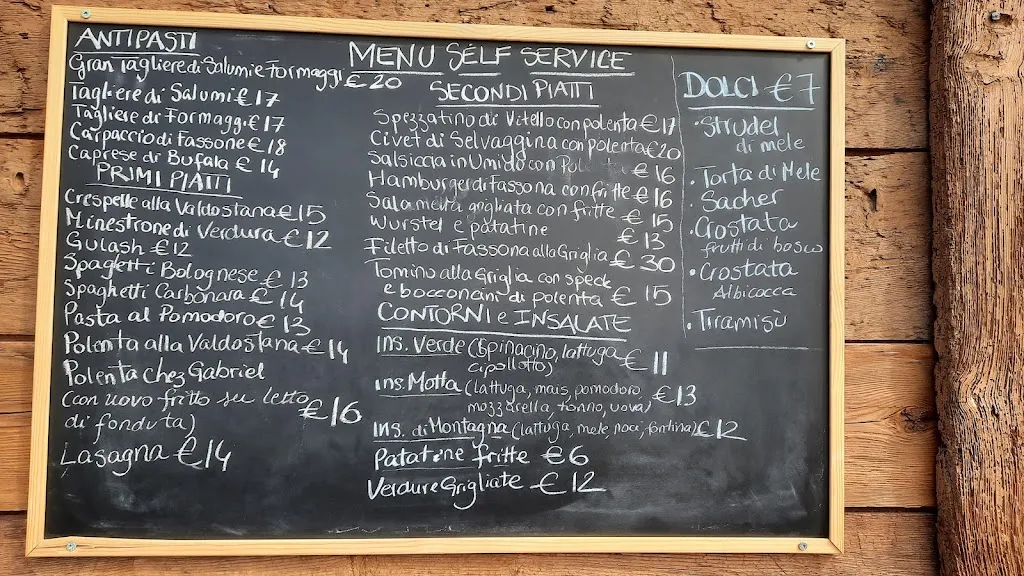 ANTIPASTI
Gran Tagliere di Salumi e Formaggi € 20
Tagliere di Salumi € 17
Tagliere di Formaggi € 17
Carpaccio di Fassone € 18
Caprese di Bufala € 14
PRIMI PIATTI
Crespelle alla Valdostana € 15
Minestrone di Verdura € 12
Gulash € 12
Spagetti Bolognese € 13
Spaghetti Carbonara € 14
Pasta al Pomodoro € 13
Polenta alla Valdostana € 14
Polenta chez Gabriel
(con uovo fritto su letto
di fonduta) € 16
Lasagna € 14
MENU SELF SERVICE
SECONDI PIATTI
Spezzatino di Vitello con polenta € 17
Civet di Selvaggina con polenta € 20
Salsiccia in Umido con € 16
Hamburger di Fassona con fritte € 16
Salamella grigliata con fritte € 15
Wurstel e patatine € 13
Filetto di Fassona alla Griglia € 30
Tomino alla Griglia con speck
e bocconcini di polenta € 15
CONTORNI e INSALATE
Ins. Verde (Spinacino, lattuga
cipollotto) € 11
Ins. Motta (lattuga, mais, pomodoro
mozzarella tonno, uova) € 13
Ins. di Montagna (lattuga, mele, noci, fontina) € 12
Patatine fritte € 6
Verdure Grigliate € 12
DOLCI € 7
• Strudel
di mele
• Torta di Mele
• Sacher
• Crostata
frutti di bosco
• Crostata
Albicocca
• Tiramisù